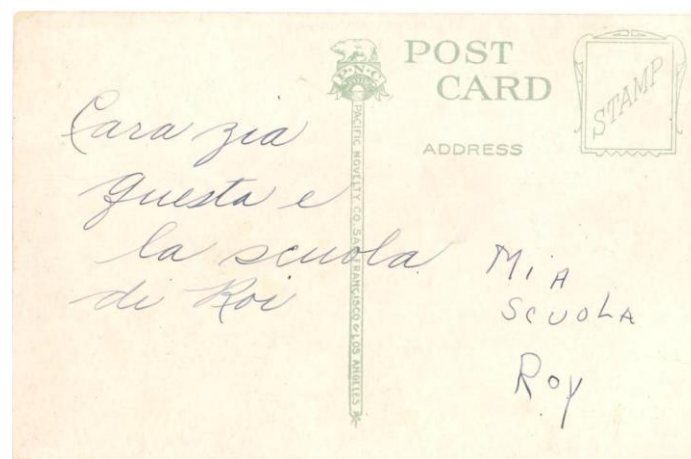 POST
CARD
STAMP
ADDRESS
P.N.C
PACIFIC NOVELTY CO. SAN FRANCISCO & LOS ANGELES
Cara zia
Questa e
la scuola
di Roi
MiA
SCUOLA
Roy